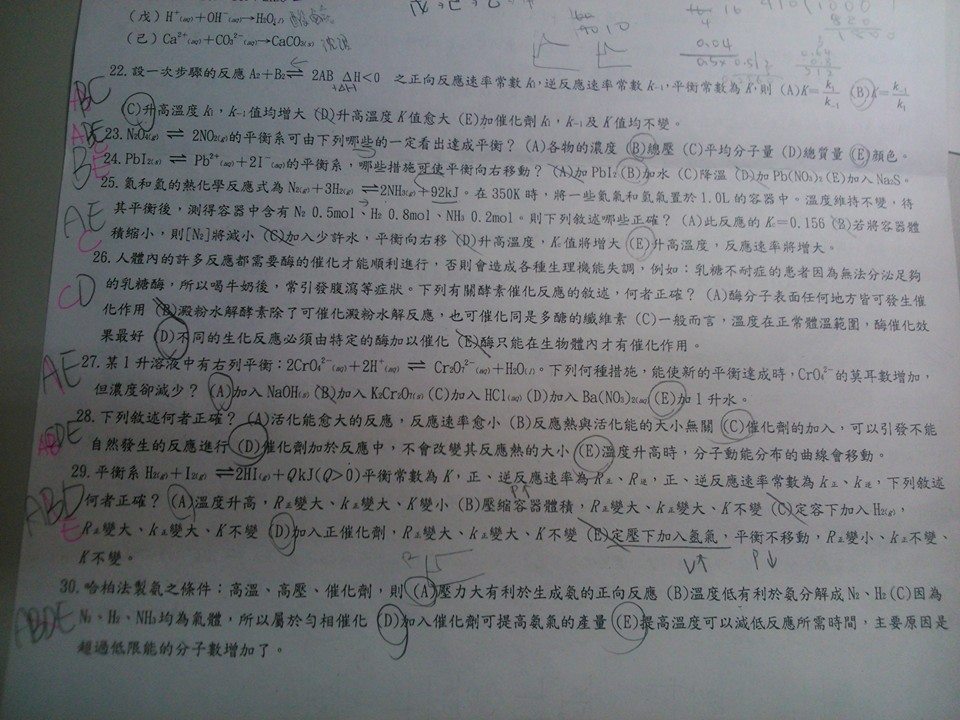 (戊) H⁺(aq)+OH⁻(aq)→H₂O(l)
(己) Ca²⁺(aq)+CO₃²⁻(aq)→CaCO₃(s) 沈澱
22. 設一次步驟的反應 A₂+B₂⇌2AB ΔH<0 之正向反應速率常數 k₁,逆反應速率常數 k₋₁,平衡常數為 K,則 (A)K=k₁/k₋₁ (B)K=k₋₁/k₁
ABC (C)升高溫度 k₁,k₋₁值均增大 (D)升高溫度 K 值愈大 (E)加催化劑 k₁,k₋₁及 K 值均不變。
23. N₂O₄(g) ⇌ 2NO₂(g)的平衡系可由下列哪些的一定看出達成平衡? (A)各物的濃度 (B)總壓 (C)平均分子量 (D)總質量 (E)顏色。
24. PbI₂(s) ⇌ Pb²⁺(aq)+2I⁻(aq)的平衡系,哪些措施可使平衡向右移動? (A)加 PbI₂ (B)加水 (C)降溫 (D)加 Pb(NO₃)₂ (E)加入 Na₂S。
25. 氮和氫的熱化學反應式為 N₂(g)+3H₂(g)⇌2NH₃(g)+92kJ。在 350K 時,將一些氮氣和氫氣置於 1.0L 的容器中。溫度維持不變,待
AE 其平衡後,測得容器中含有 N₂ 0.5mol、H₂ 0.8mol、NH₃ 0.2mol。則下列敘述哪些正確? (A)此反應的 K=0.156 (B)若將容器體
C 積縮小,則[N₂]將減小 (C)加入少許水,平衡向右移 (D)升高溫度,K 值將增大 (E)升高溫度,反應速率將增大。
26. 人體內的許多反應都需要酶的催化才能順利進行,否則會造成各種生理機能失調,例如:乳糖不耐症的患者因為無法分泌足夠
CD 的乳糖酶,所以喝牛奶後,常引發腹瀉等症狀。下列有關酵素催化反應的敘述,何者正確? (A)酶分子表面任何地方皆可發生催
化作用 (B)澱粉水解酵素除了可催化澱粉水解反應,也可催化同是多醣的纖維素 (C)一般而言,溫度在正常體溫範圍,酶催化效
果最好 (D)不同的生化反應必須由特定的酶加以催化 (E)酶只能在生物體內才有催化作用。
AE 27. 某 1 升溶液中有右列平衡:2CrO₄²⁻(aq)+2H⁺(aq) ⇌ Cr₂O₇²⁻(aq)+H₂O(l)。下列何種措施,能使新的平衡達成時,CrO₄²⁻的莫耳數增加,
但濃度卻減少? (A)加入 NaOH(s) (B)加入 K₂Cr₂O₇(s) (C)加入 HCl(aq) (D)加入 Ba(NO₃)₂(aq) (E)加 1 升水。
28. 下列敘述何者正確? (A)活化能愈大的反應,反應速率愈小 (B)反應熱與活化能的大小無關 (C)催化劑的加入,可以引發不能
ABDE 自然發生的反應進行 (D)催化劑加於反應中,不會改變其反應熱的大小 (E)溫度升高時,分子動能分布的曲線會移動。
29. 平衡系 H₂(g)+I₂(g) ⇌2HI(g)+QkJ(Q>0)平衡常數為 K,正、逆反應速率為 R正、R逆,正、逆反應速率常數為 k正、k逆,下列敘述
ABD 何者正確? (A)溫度升高,R正變大、k正變大、K 變小 (B)壓縮容器體積,R正變大、k正變大、K 不變 (C)定容下加入 H₂(g),
E R正變大、k正變大、K 不變 (D)加入正催化劑,R正變大、k正變大、K 不變 (E)定壓下加入氦氣,平衡不移動,R正變小、k正不變、
K 不變。 V↑ P↓
30. 哈柏法製氨之條件:高溫、高壓、催化劑,則 (A)壓力大有利於生成氨的正向反應 (B)溫度低有利於氨分解成 N₂、H₂ (C)因為
ABDE N₂、H₂、NH₃均為氣體,所以屬於勻相催化 (D)加入催化劑可提高氨氣的產量 (E)提高溫度可以減低反應所需時間,主要原因是
超過低限能的分子數增加了。